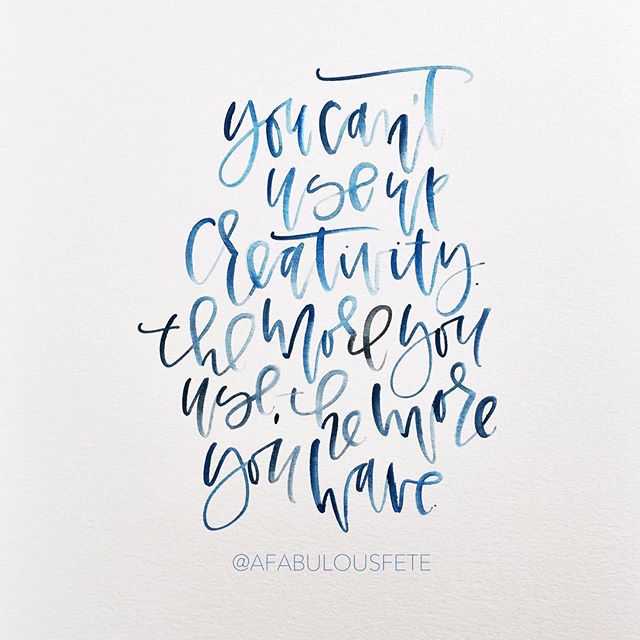 you can't
use up
Creativity.
the more you
use, the more
you have.
@AFABULOUSFETE